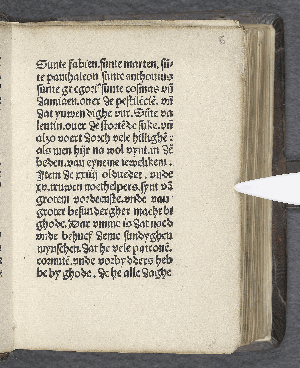 6
Sunte fabien. sunte marten. sū-
te panthaleon sunte anthonius
sunte gregori⁹ sunte cosmas vñ
damiaen. ouer de pestilēcie. vñ
dat yuwendighe vur. Sūte va
lentin. ouer de stortēde suke. vñ
alzo voert dorch vele hilligħe.
als men hijr na wol vynt. in dē
beden. van eyneme iewelikem.
Item de xxiiij olduedet. vnde
xv. truwen noethelpers. synt vā
groten vordenste. vnde van
groter besundergher macht bi
ghode. War vmme is dat noed
vnde behuef deme sundyghen
mynschen. dat he vele patronē.
comme. vnde vorbydders heb
be by ghode. de he alle daghe